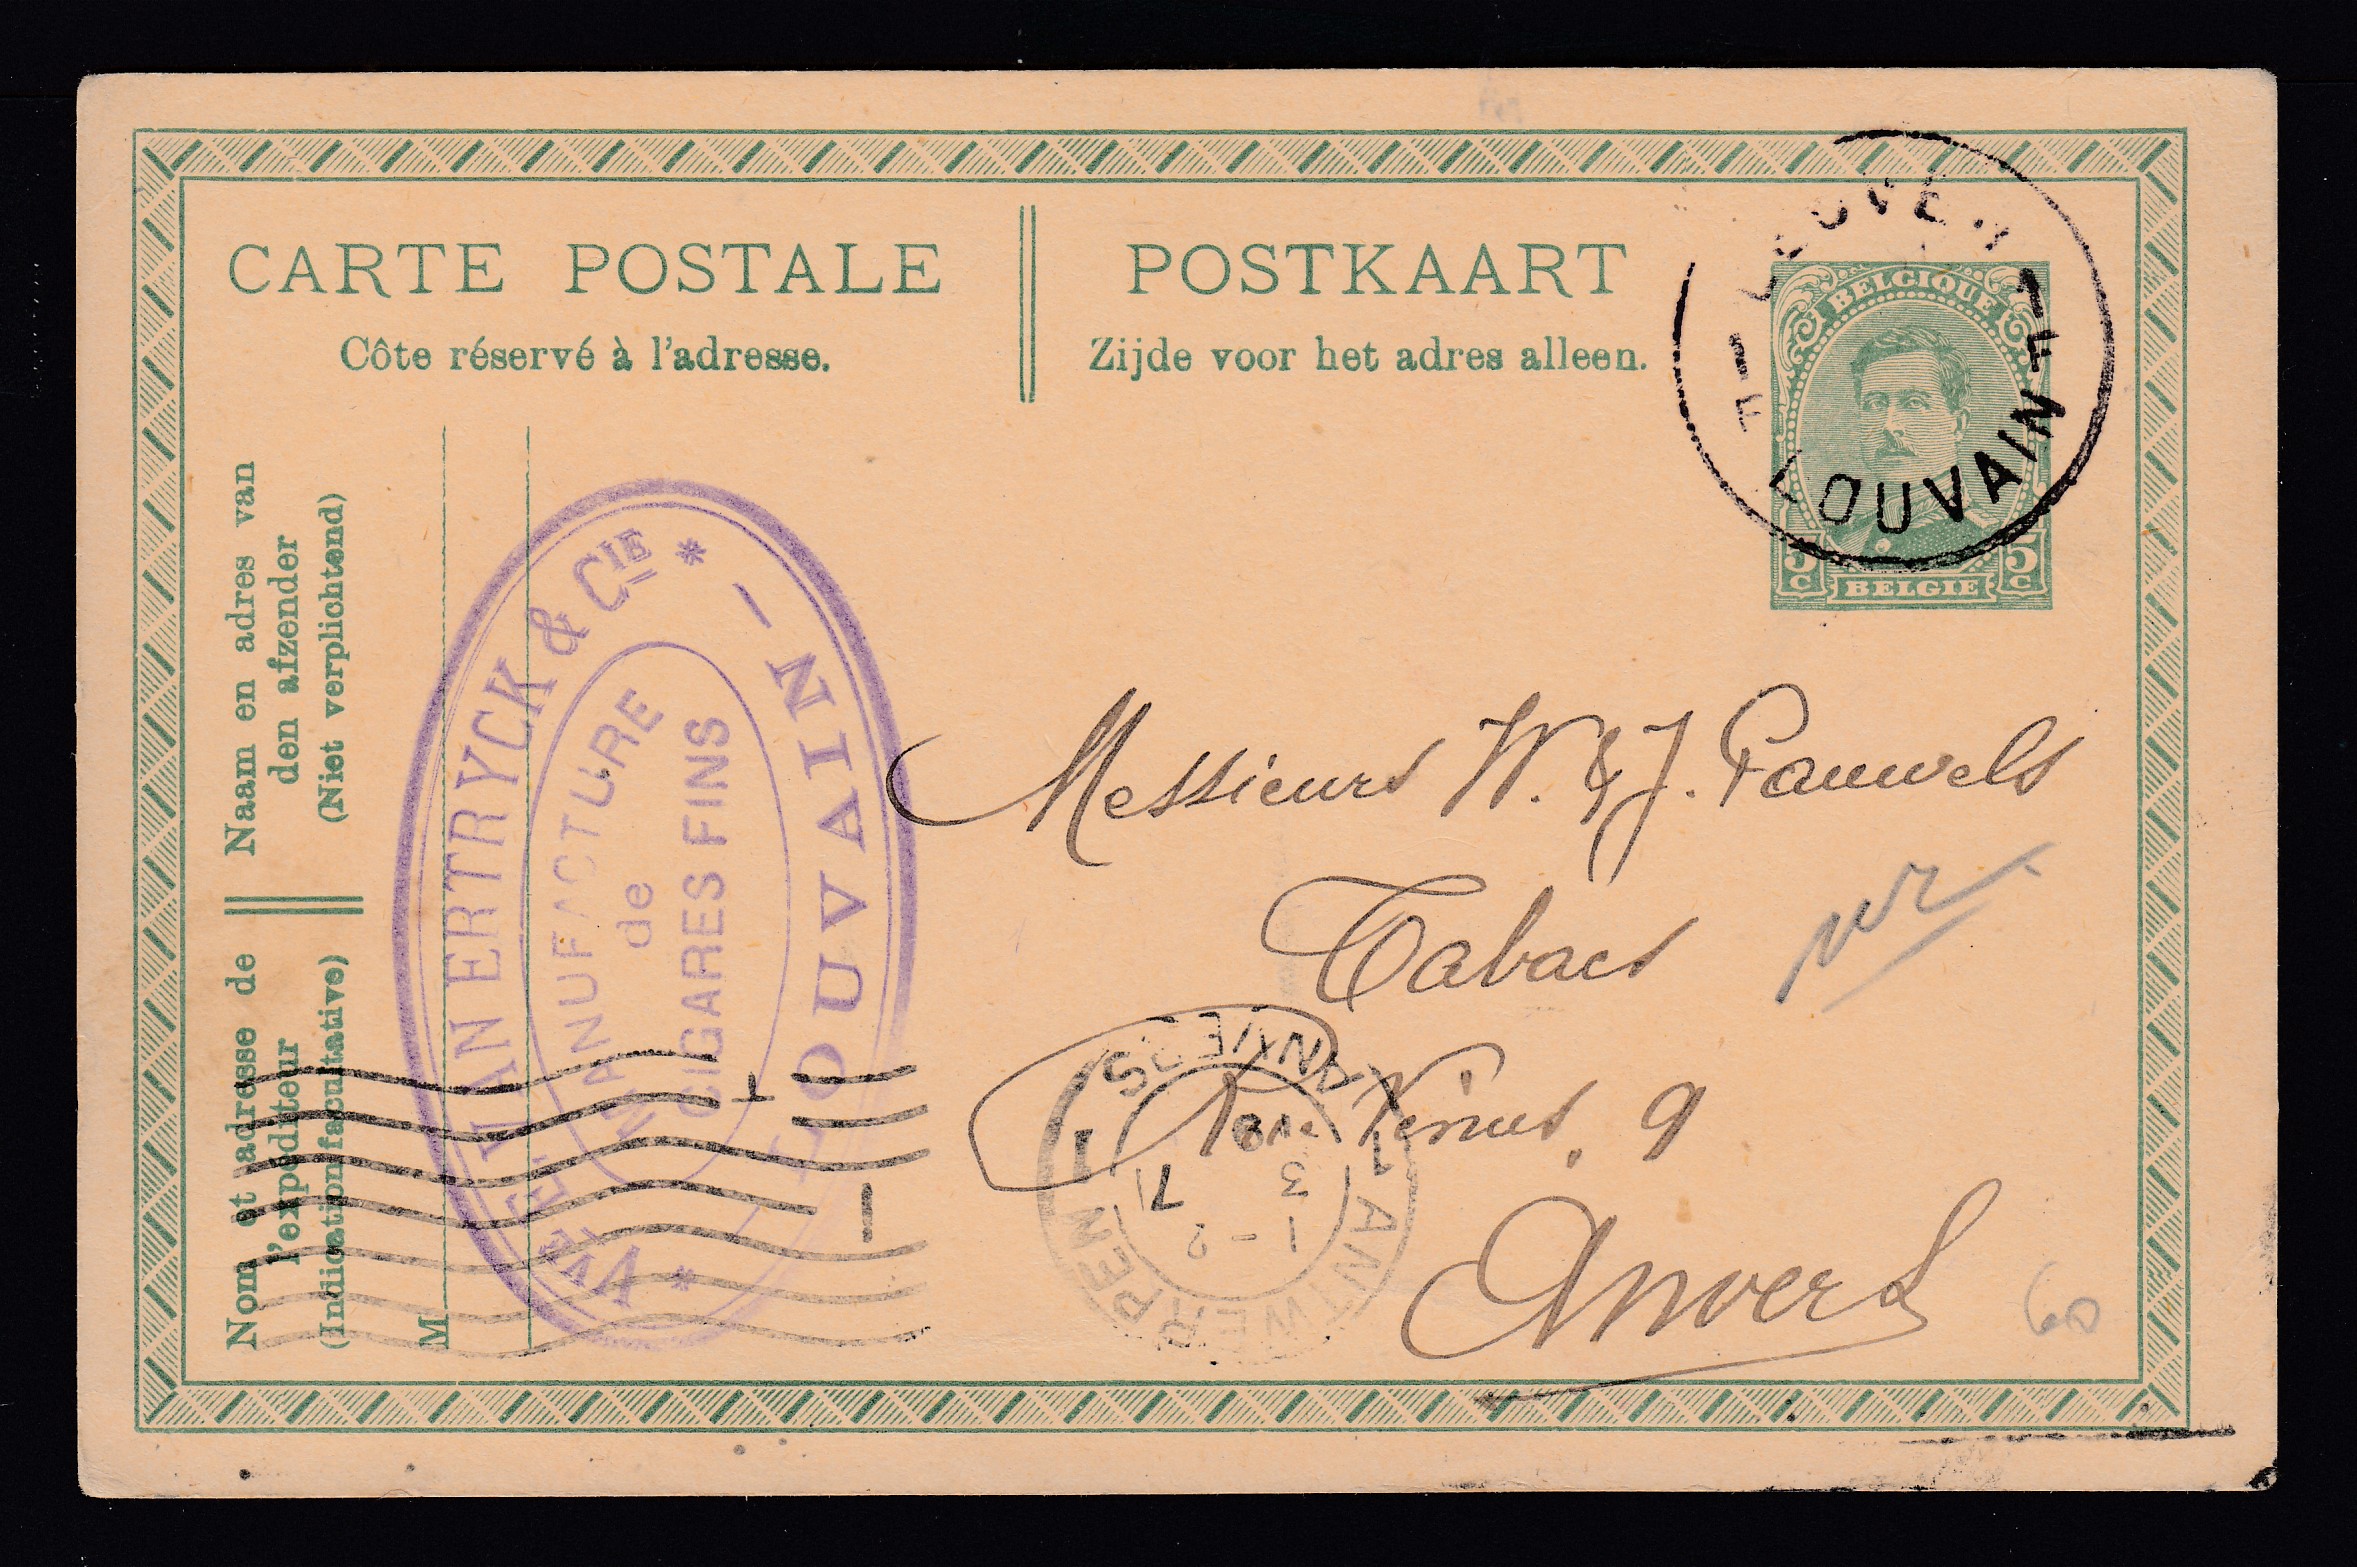 CARTE POSTALE
Côte réservé à l'adresse.
POSTKAART
Zijde voor het adres alleen.
LEUVEN
LOUVAIN
BELGIQUE
5 C BELGIE 5 C
Naam en adres van
den afzender
(Niet verplichtend)
Nom et adresse de
l'expéditeur
(Indication facultative)
M
VAN ERTRYCK & CIE
MANUFACTURE
de
CIGARES FINS
LOUVAIN
Messieurs W. & J. Pauwels
Tabacs
9
Anvers
ANVERS
1 ANTWERPEN 1
3
1-2
60